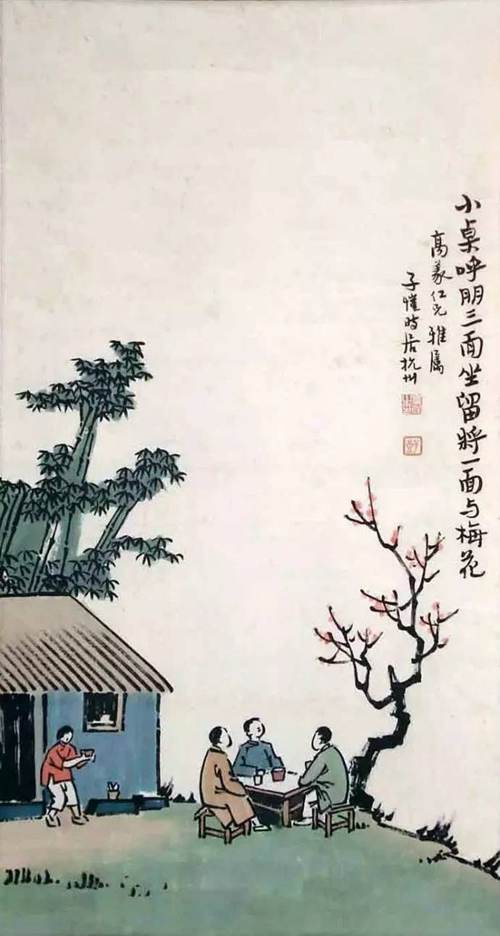 小桌呼朋三面坐留將一面与梅花
高仁兄雅属
子愷时居杭州